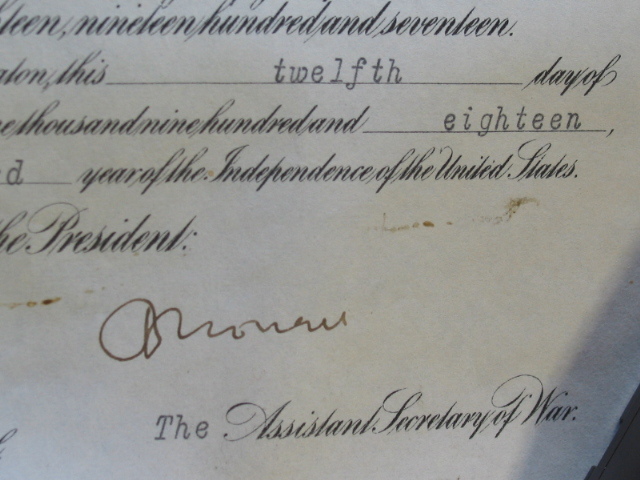 teen, nineteen hundred and seventeen.
ton, this twelfth day of
e thousand nine hundred and eighteen,
d year of the Independence of the United States.
he President:
The Assistant Secretary of War.